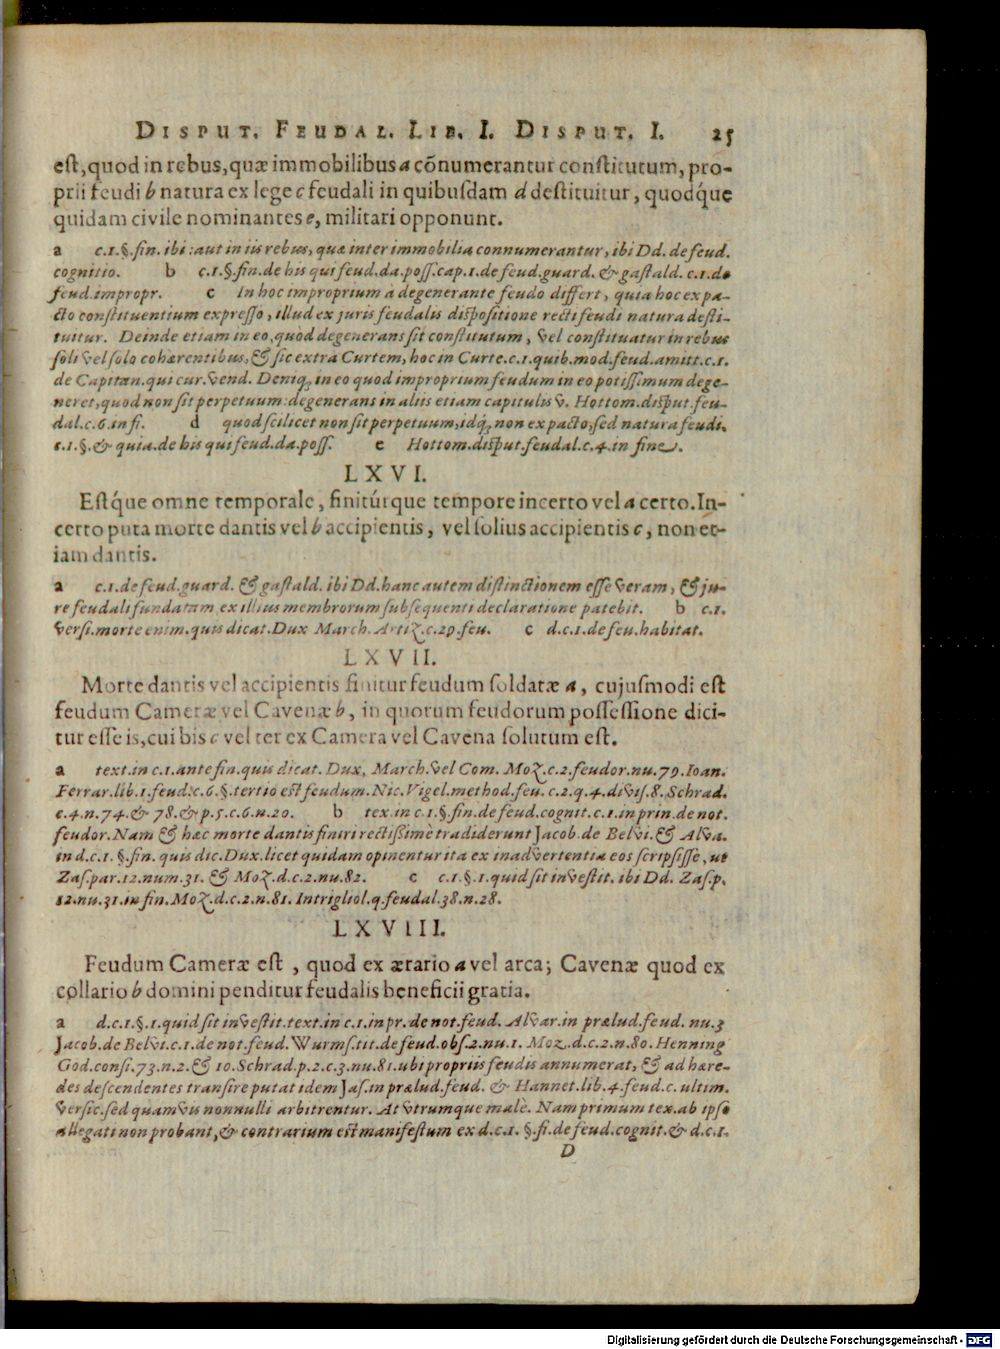 DISPUT. FEUDAL. LIB. I. DISPUT. I. 25
est, quod in rebus, quæ immobilibus a cõnumerantur constitutum, pro-
prii feudi b natura ex lege c feudali in quibusdam d destituitur, quodq́ue
quidam civile nominantes e, militari opponunt.
a c.1.§.fin. ibi: aut in iis rebus, quæ inter immobilia connumerantur, ibi Dd. de feud.
cognitio. b c.1.§.fin.de his qui feud.da.poss.cap.1.de feud.guard. & gastald. c.1.de
feud.impropr. c In hoc improprium à degenerante feudo differt, quia hoc ex pa-
cto constituentium expresso, illud ex juris feudalis dispositione recti feudi natura desti-
tuitur. Deinde etiam in eo, quòd degenerans sit constitutum, vel constituatur in rebus
soli vel solo cohærentibus, & sic extra Curtem, hoc in Curte.c.1.quib.mod.feud.amitt.c.1.
de Capitan.qui cur.vend. Deniq; in eo quod improprium feudum in eo potissimum dege-
neret, quod non sit perpetuum: degenerans in aliis etiam capitulis v. Hottom.disput.feu-
dal.c.6.in fi. d quod scilicet non sit perpetuum, idq; non ex pacto, sed natura feudi.
c.1.§.& quia.de his qui feud.da.poss. e Hottom.disput.feudal.c.4.in fine.
LXVI.
Estq́ue omne temporale, finitúrque tempore incerto vel a certo. In-
certo puta morte dantis vel b accipientis, vel solius accipientis c, non et-
iam dantis.
a c.1.de feud.guard. & gastald. ibi Dd. hanc autem distinctionem esse veram, & ju-
re feudali fundatam ex illius membrorum subsequenti declaratione patebit. b c.1.
versi.morte enim.quis dicat.Dux March. Artiz.c.29.feu. c d.c.1.de feu.habitat.
LXVII.
Morte dantis vel accipientis finitur feudum soldatæ a, cujusmodi est
feudum Cameræ vel Cavenæ b, in quorum feudorum possessione dici-
tur esse is, cui bis c vel ter ex Camera vel Cavena solutum est.
a text.in c.1.ante fin.quis dicat. Dux, March.vel Com. Moz.c.2.feudor.nu.79.Ioan.
Ferrar.lib.1.feud.c.6.§.tertio est feudum. Nic.Vigel.method.feu.c.2.q.4.divis.8.Schrad.
c.4.n.74.& 78.& p.5.c.6.n.20. b tex.in c.1.§.fin.de feud.cognit.c.1.in prin.de not.
feudor. Nam & hæc morte dantis finiri rectissimè tradiderunt Jacob.de Belvi.& Alva.
in d.c.1. §.fin. quis dic.Dux.licet quidam opinentur ita ex inadvertentia eos scripsisse, ut
Zas.par.12.num.31. & Moz.d.c.2.nu.82. c c.1.§.1.quid sit investit. ibi Dd. Zas.p.
12.nu.31.in fin.Moz.d.c.2.n.81.Intrigliol.q.feudal.38.n.28.
LXVIII.
Feudum Cameræ est, quod ex ærario a vel arca; Cavenæ quod ex
collario b domini penditur feudalis beneficii gratia.
a d.c.1.§.1.quid sit investit.text.in c.1.in pr.de not.feud. Alvar.in prælud.feud. nu.3
Jacob.de Belvi.c.1.de not.feud.Wurms.tit.de feud.obs.2.nu.1. Moz.d.c.2.n.80.Henning
God.consi.73.n.2.& 10.Schrad.p.2.c.3.nu.81.ubi propriis feudis annumerat, & ad hære-
des descendentes transire putat idem Jas.in prælud.feud. & Hannet.lib.4.feud.c.ultim.
versic.sed quamvis nonnulli arbitrentur. At vtrumque malè. Nam primum tex.ab ipso
allegati non probant, & contrarium est manifestum ex d.c.1. §.fi.de feud.cognit.& d.c.1.
D
Digitalisierung gefördert durch die Deutsche Forschungsgemeinschaft - DFG